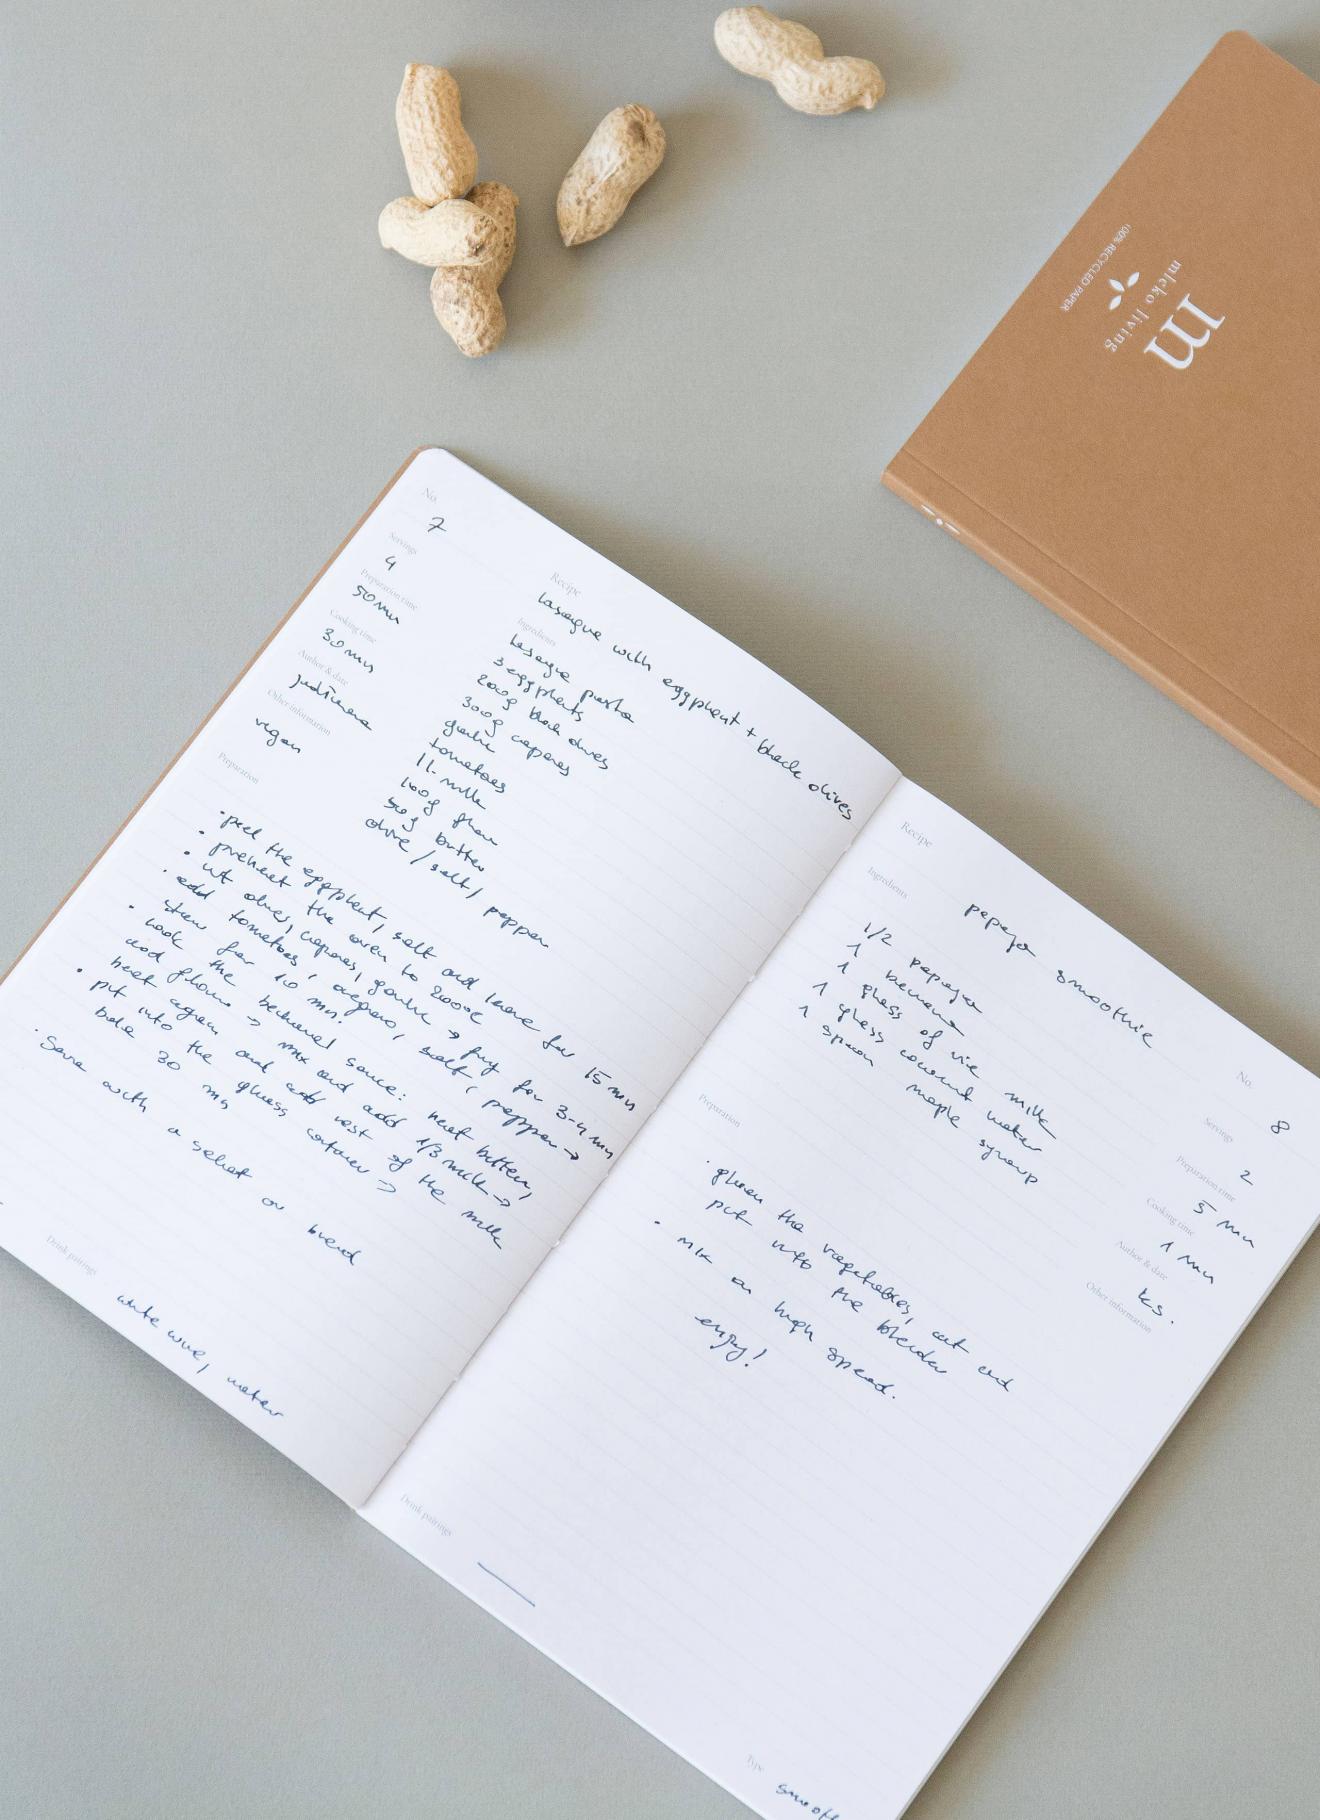 No.
7
Servings
4
Preparation time
50 min
Cooking time
30 min
Author & date
Other information
vegan
Recipe
lasagne with eggplant + black olives
Ingredients
lasagne pasta
3 eggplants
200g black olives
300g capares
garlic
tomatoes
1 L milk
100g flour
50g butter
olive / salt / pepper
Preparation
· peel the eggplant, salt and leave for 15 min
· preheat the oven to 200°C
· cut olives, capares, garlic → fry for 3-4 min
· add tomatoes, salt, pepper →
stew for 10 min.
· cook the bechamel sauce: heat butter,
add flour → mix and add 1/3 milk →
heat again and add rest of the milk
· put into the glass container →
bake 30 min
· Serve with a salat or bread
Drink pairings
white wine, water
Recipe
papaya smoothie
Ingredients
1/2 papaya
1 banana
1 glass of rice milk
1 glass coconut water
1 spoon maple syroup
No.
8
Servings
2
Preparation time
5 min
Cooking time
1 min
Author & date
ks.
Other information
Preparation
· the vegetables, cut and
put into the blender
· mix on high speed.
enjoy!
Drink pairings
Type
100% RECYCLED PAPER
mleko living
m